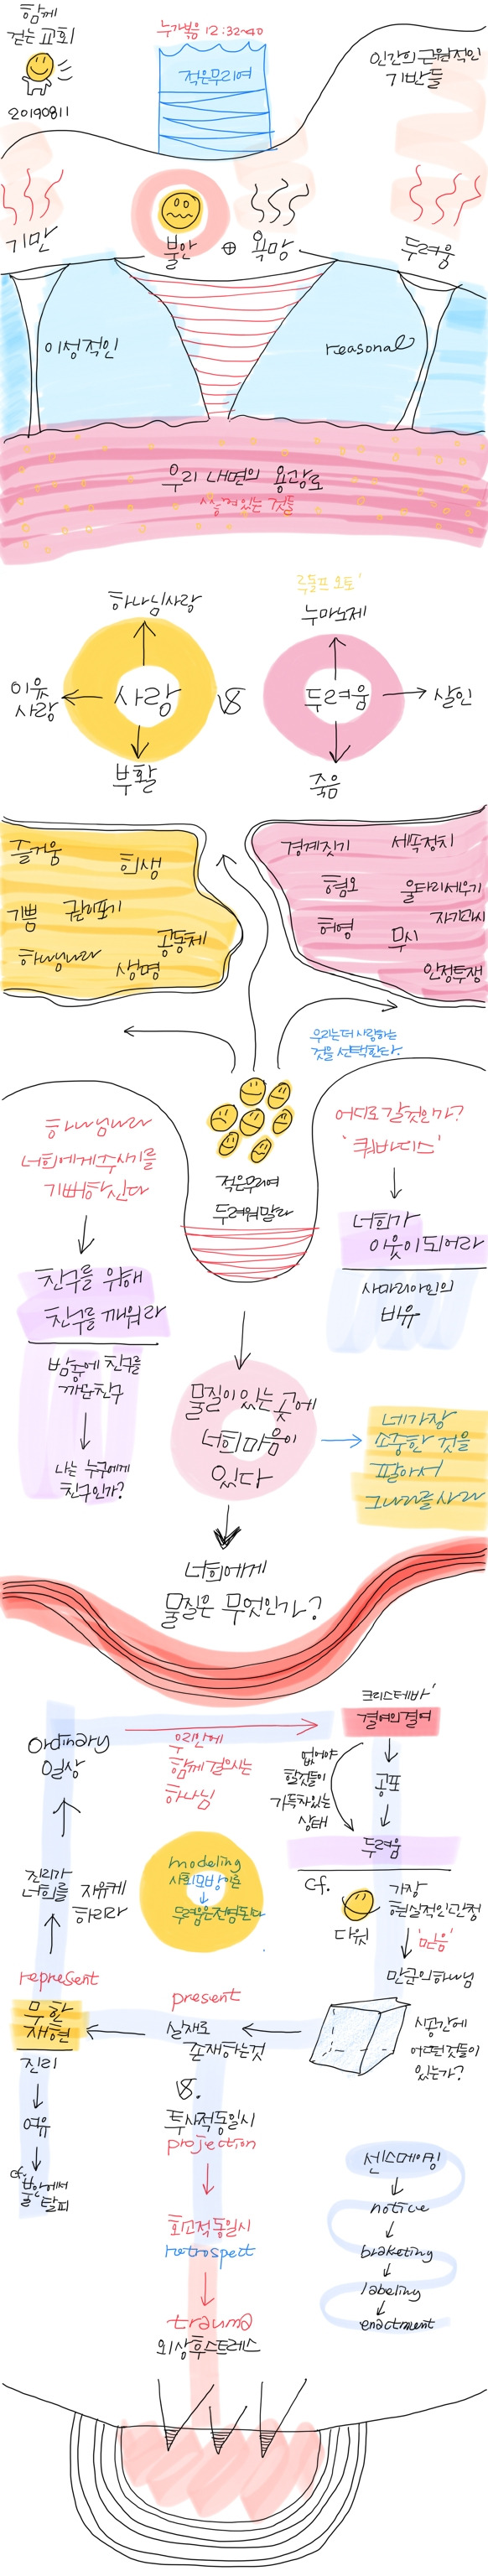 함께
걷는 교회
20190811
누가복음 12:32~40
적은무리여
인간의 근원적인
기반들
기만
불안 ⊕ 욕망
두려움
이성적인
reasonal
우리 내면의 용광로
사슬려있는 것들
하나님사랑
이웃
사랑
사랑
부활
VS
루돌프 오토'
누미노제
두려움
살인
죽음
즐거움
희생
기쁨
하나님나라
생명
공동체
경계짓기
세속정치
혐오
울타리세우기
허영
무시
자기과시
인정투쟁
우리는 더 사랑하는
것을 선택한다.
하나님나라
너희에게 주시기를
기뻐하신다
친구를 위해
친구를 깨워라
밤중에 친구를
깨운친구
나는 누구에게
친구인가?
적은무리여
두려워말라
어디로 갈것인가?
'쿼바디스'
너희가
이웃이되어라
사마리아인의
비유
물질이 있는 곳에
너희 마음이
있다
네가장
소중한 것을
팔아서
그나라를 사라
너희에게
물질은 무엇인가?
Ordinary
일상
우리안에
함께 걸으시는
하나님
크리스테바'
결여의결여
없어야
할것들이
가득차있는
상태
공포
두려움
cf.
다윗
가장
현실적인감정
'믿음'
만군의하나님
진리가
너희를 자유케
하리라
modeling
사회모방이론
두려움은전염된다
represent
무한
재현
진리
여유
cf.
불안에서
탈피
present
실재로
존재하는것
시공간에
어떤것들이
있는가?
VS.
투사적동일시
projection
회고적동일시
retrospect
trauma
외상후스트레스
센스메이킹
notice
braketing
labeling
enactment